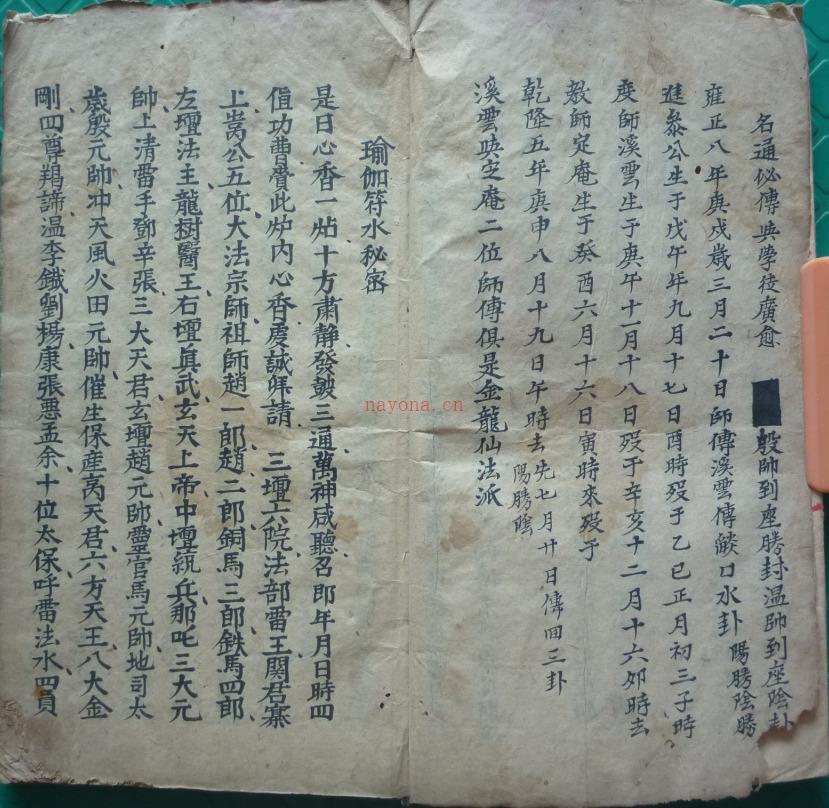 名通秘傳與學徒廣愈 殷帥到座勝封溫帥到座陰卦
雍正八年庚戍歲三月二十日師傳溪雲傳燄口水卦 陽勝陰勝
進叅公生于戊午年九月十七日酉時歿于乙巳正月初三子時
度師溪雲生于庚午十一月十八日歿于辛亥十二月十六夘時去
教師定庵生于癸酉六月十六日寅時來歿于
乾隆五年庚申八月十九日午時去 先七月廿日傳回三卦
陽勝陰
溪雲與定庵二位師傳俱是金龍仙法派
瑜伽符水秘密
是日心香一炷十方肅静發皷三通萬神咸聽召郎年月日時四
值功曹賫此炉内心香虔誠拜請 三壇六院法部雷王関君寨
上嵩公五位大法宗師祖師趙一郎趙二郎銅馬三郎鉄馬四郎
左壇法主龍樹醫王右壇真武玄天上帝中壇統兵那吒三大元
帥上清雷手鄧辛張三大天君玄壇趙元帥靈官馬元帥地司太
歲殷元帥冲天風火田元帥催生保産高天君六方天王八大金
剛四尊羯諦溫李鐵劉揚康張悪孟余十位太保呼雷法水四員
nayona.cn